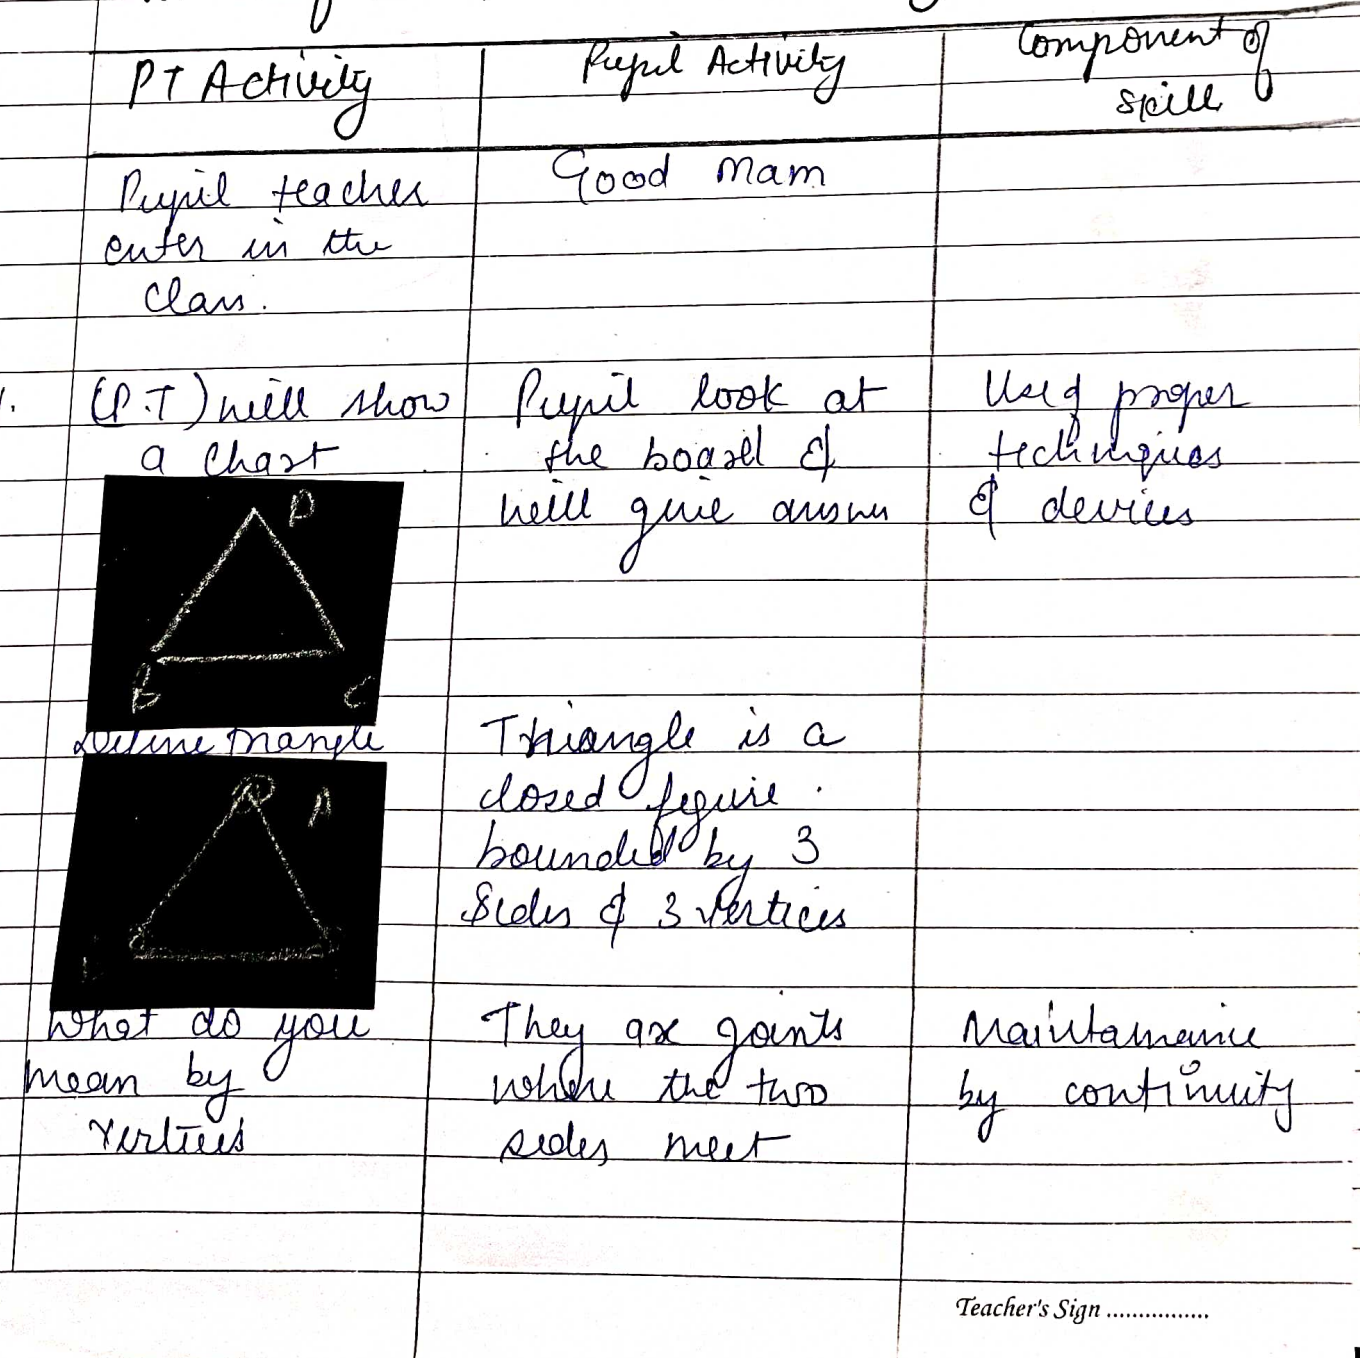 PT Activity
Pupil Activity
Component of
skill
Pupil teacher
enter in the
class.
Good mam
1.
(P.T) will show
a chart
Pupil look at
the board &
will give answer
Use of proper
techniques
& devices
D
B
C
Define triangle
Triangle is a
closed figure
bounded by 3
sides & 3 vertices
A
What do you
mean by
vertices
They are points
where the two
sides meet
Maintainence
by continuity
Teacher's Sign ................